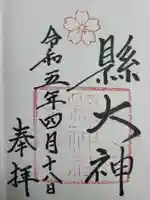 奉拝
縣大神
令和五年四月十八日